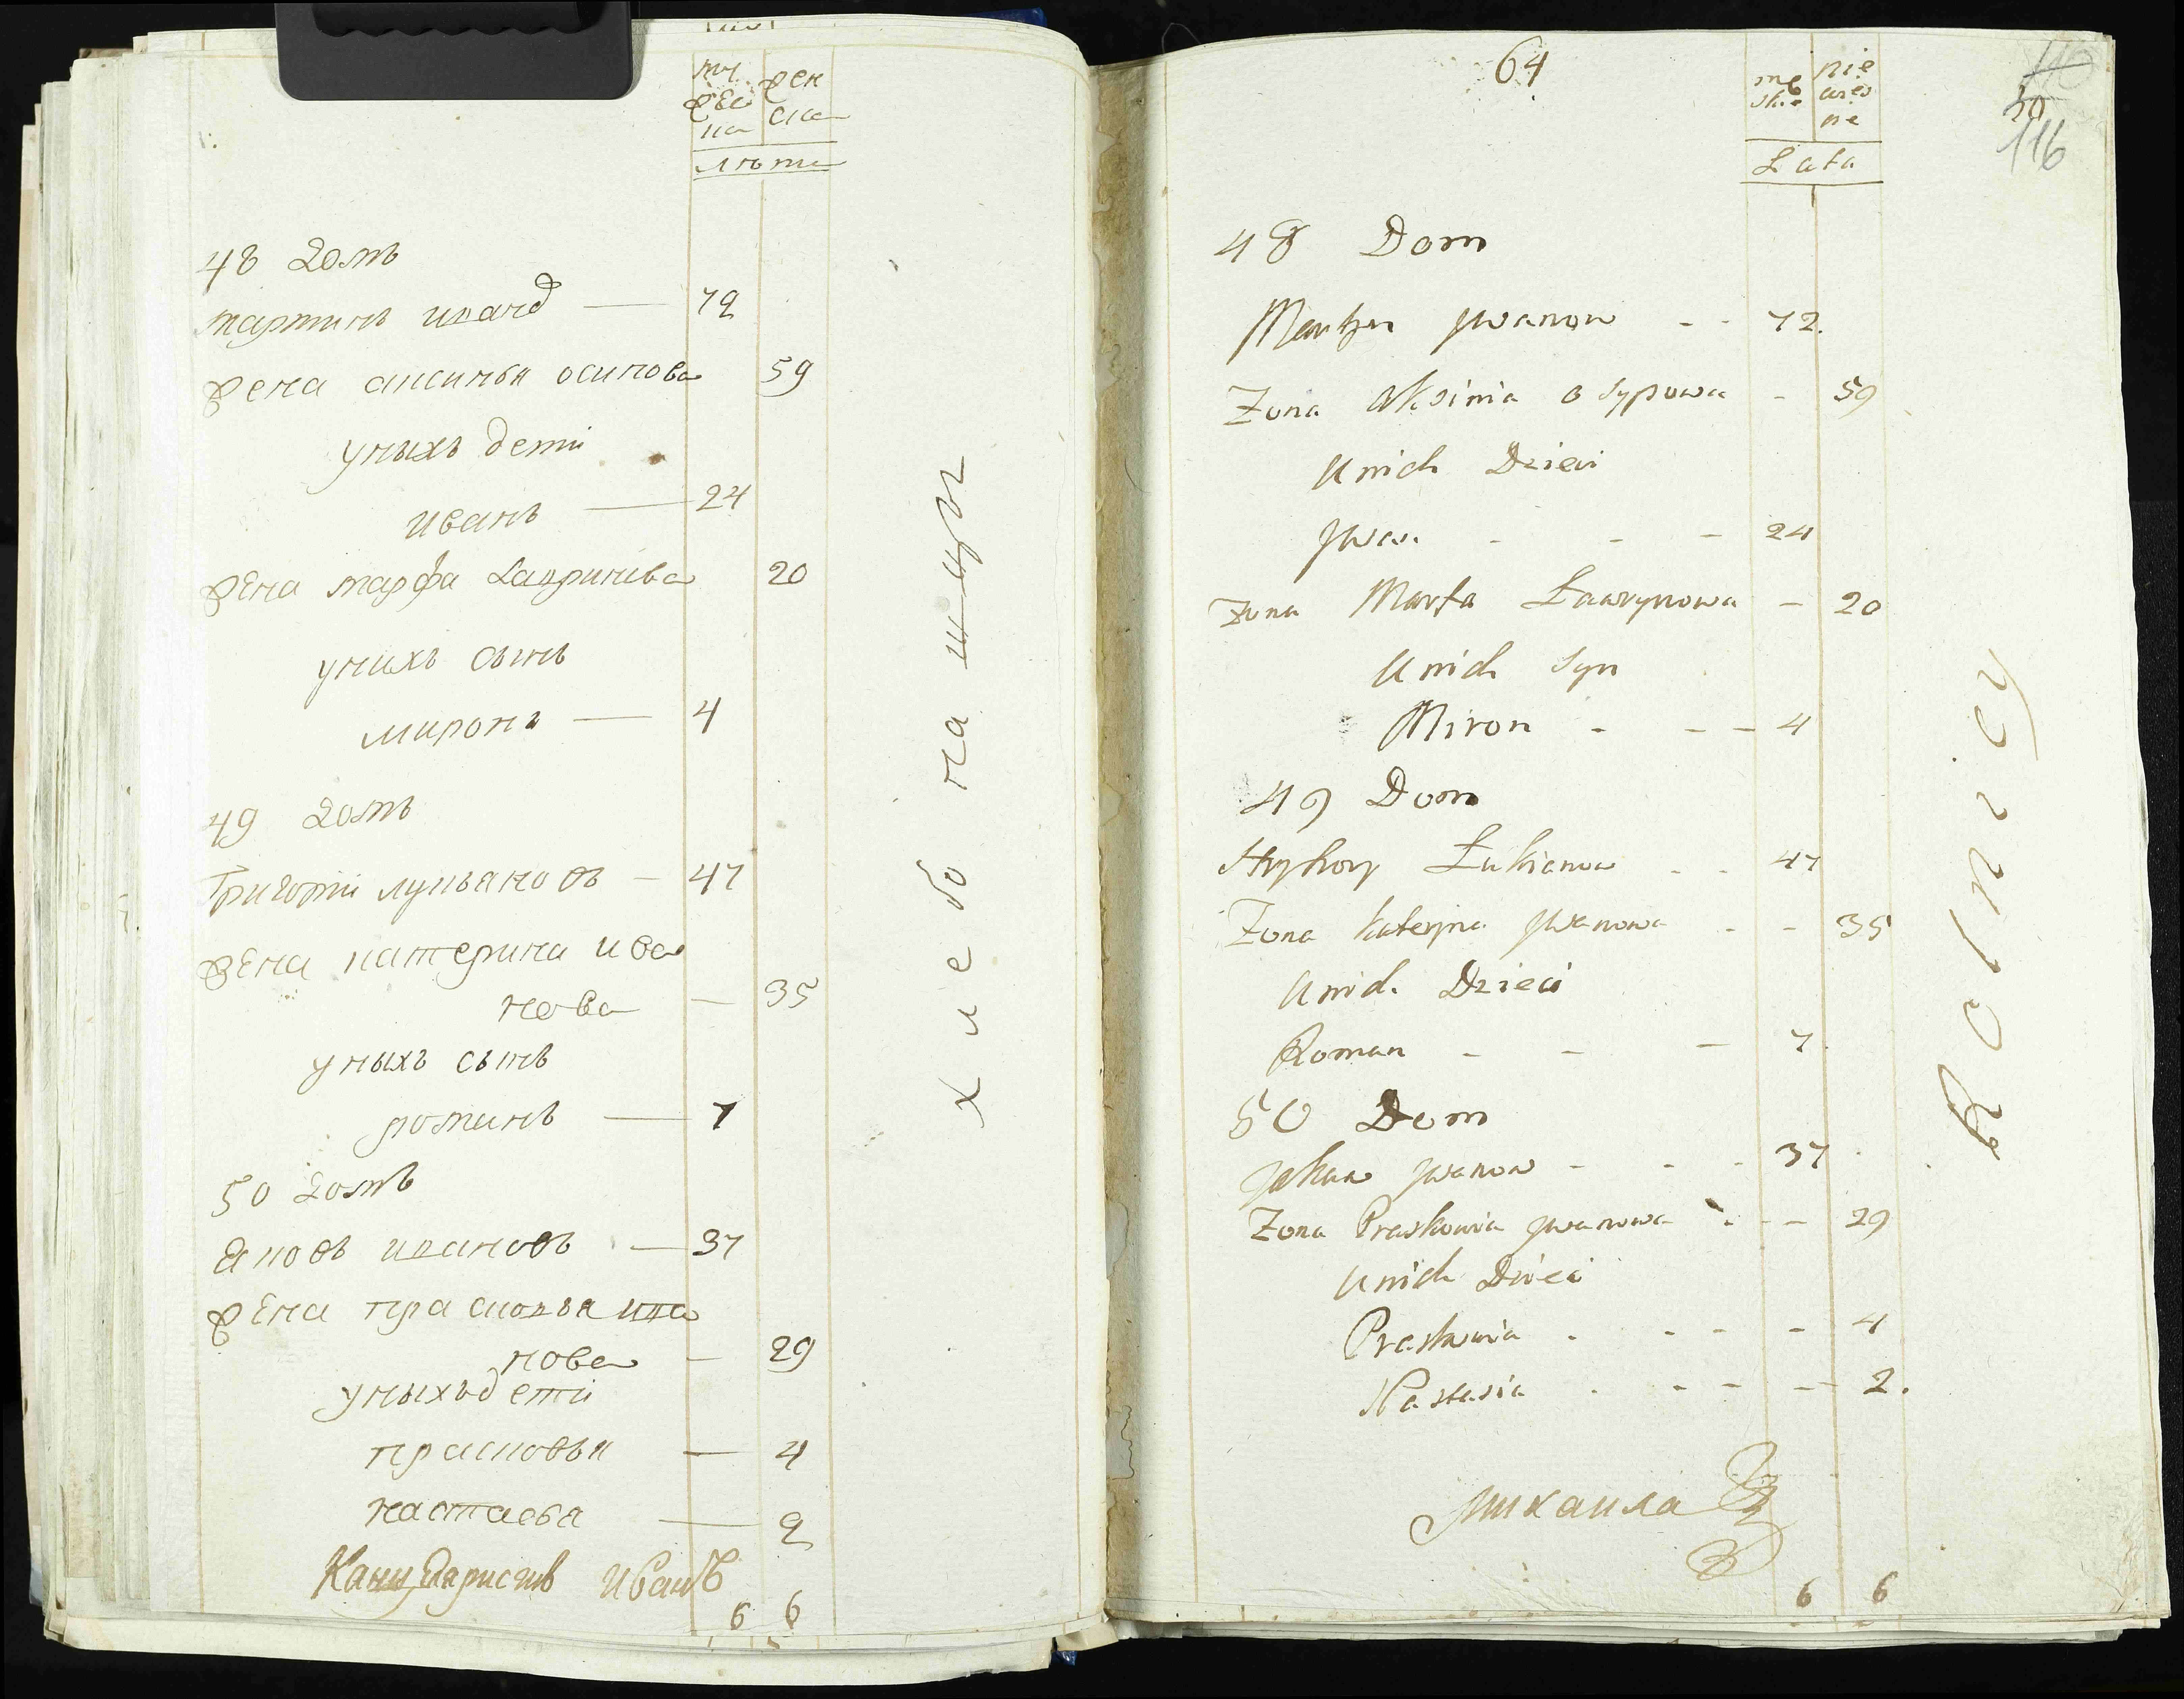 му
жес
ка
жен
ска
лѣта
48 домъ
мартинъ иванď — 72
жена аксинья осипова 59
уныхъ дети
иванъ — 24
жена марфа Лавринива 20
унихъ сынъ
миронъ — 4
49 домъ
Григорти лукьяновъ — 47
жена катерина ива
нова — 35
уныхъ сынъ
романъ — 7
50 домъ
Яковъ ивановъ — 37
жена прасковья ива
нова — 29
уныхъ дети
прасковья — 4
настасья — 2
иванъ
6 6
хлебопашцы
64
me
skie
nie
wieś
nie
Lata
110
50
116
48 Dom
Martyn Jwanow - - 72.
Żona Aksinia Osypowa - 59
Unich Dzieci
Jwan - - - 24
Żona Marfa Ławrynowa - 20
Unich Syn
Miron - - - 4
49 Dom
Hryhory Łukianow - - 47
Żona Kateryna Jwanowa - - 35
Unich Dzieci
Roman - - - 7.
50 Dom
Jakuw Jwanow - - - 37
Żona Praskowia Jwanowa - - - 29
Unich Dzieci
Praskowia - - - - 4
Nastasia - - - - 2.
Михаила
6 6
Rolnicy